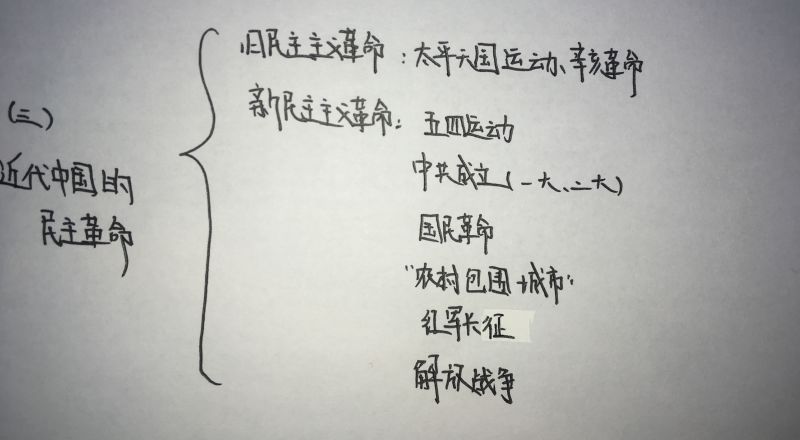 (三)
近代中国的
民主革命
旧民主主义革命：太平天国运动、辛亥革命
新民主主义革命：五四运动
中共成立(一大、二大)
国民革命
"农村包围城市"
红军长征
解放战争